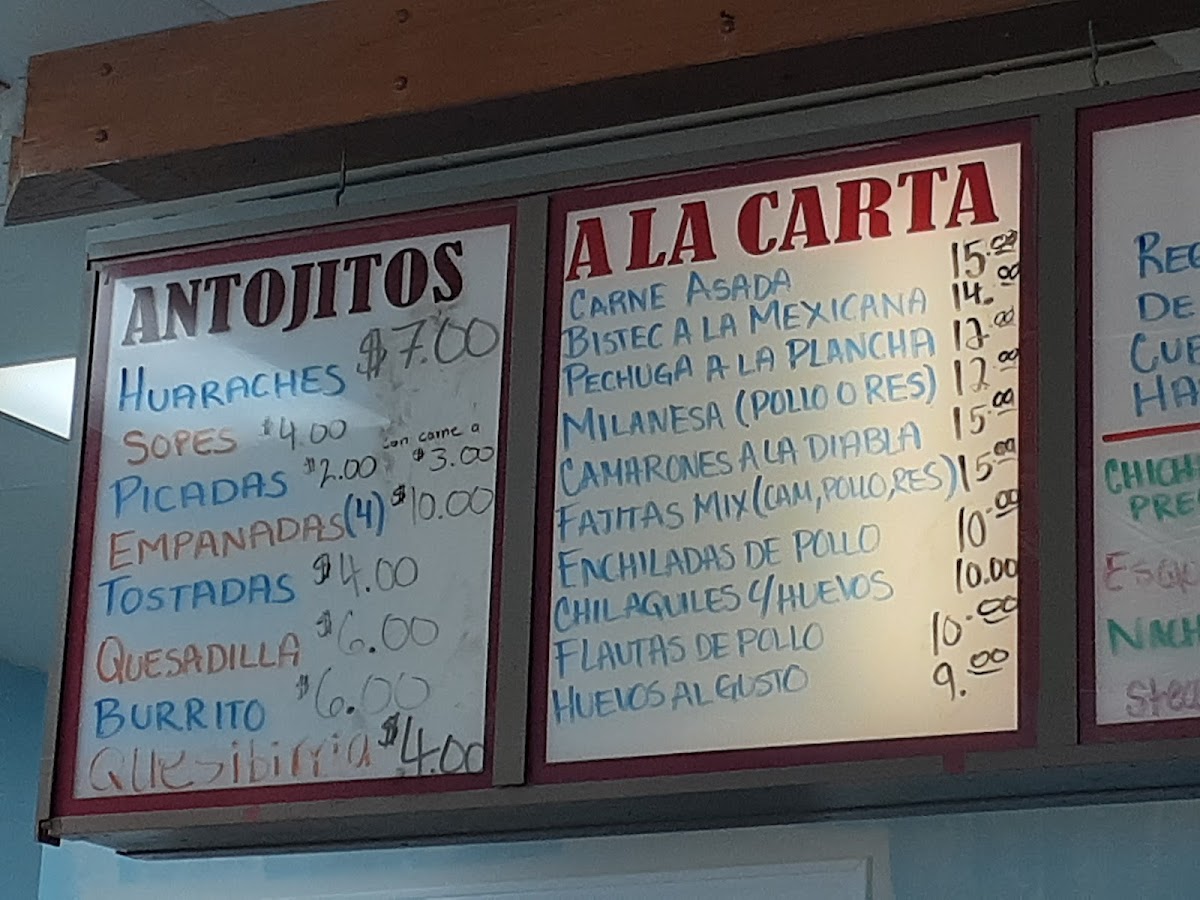 ANTOJITOS
HUARACHES $7.00
SOPES $4.00
PICADAS $2.00 con carne a $3.00
EMPANADAS (4) $10.00
TOSTADAS $4.00
QUESADILLA $6.00
BURRITO $6.00
Quesibirria $4.00
A LA CARTA
CARNE ASADA 15.00
BISTEC A LA MEXICANA 14.00
PECHUGA A LA PLANCHA 12.00
MILANESA (POLLO O RES) 12.00
CAMARONES A LA DIABLA 15.00
FAJITAS MIX (CAM, POLLO, RES) 15.00
ENCHILADAS DE POLLO 10.00
CHILAQUILES C/HUEVOS 10.00
FLAUTAS DE POLLO 10.00
HUEVOS AL GUSTO 9.00
DE